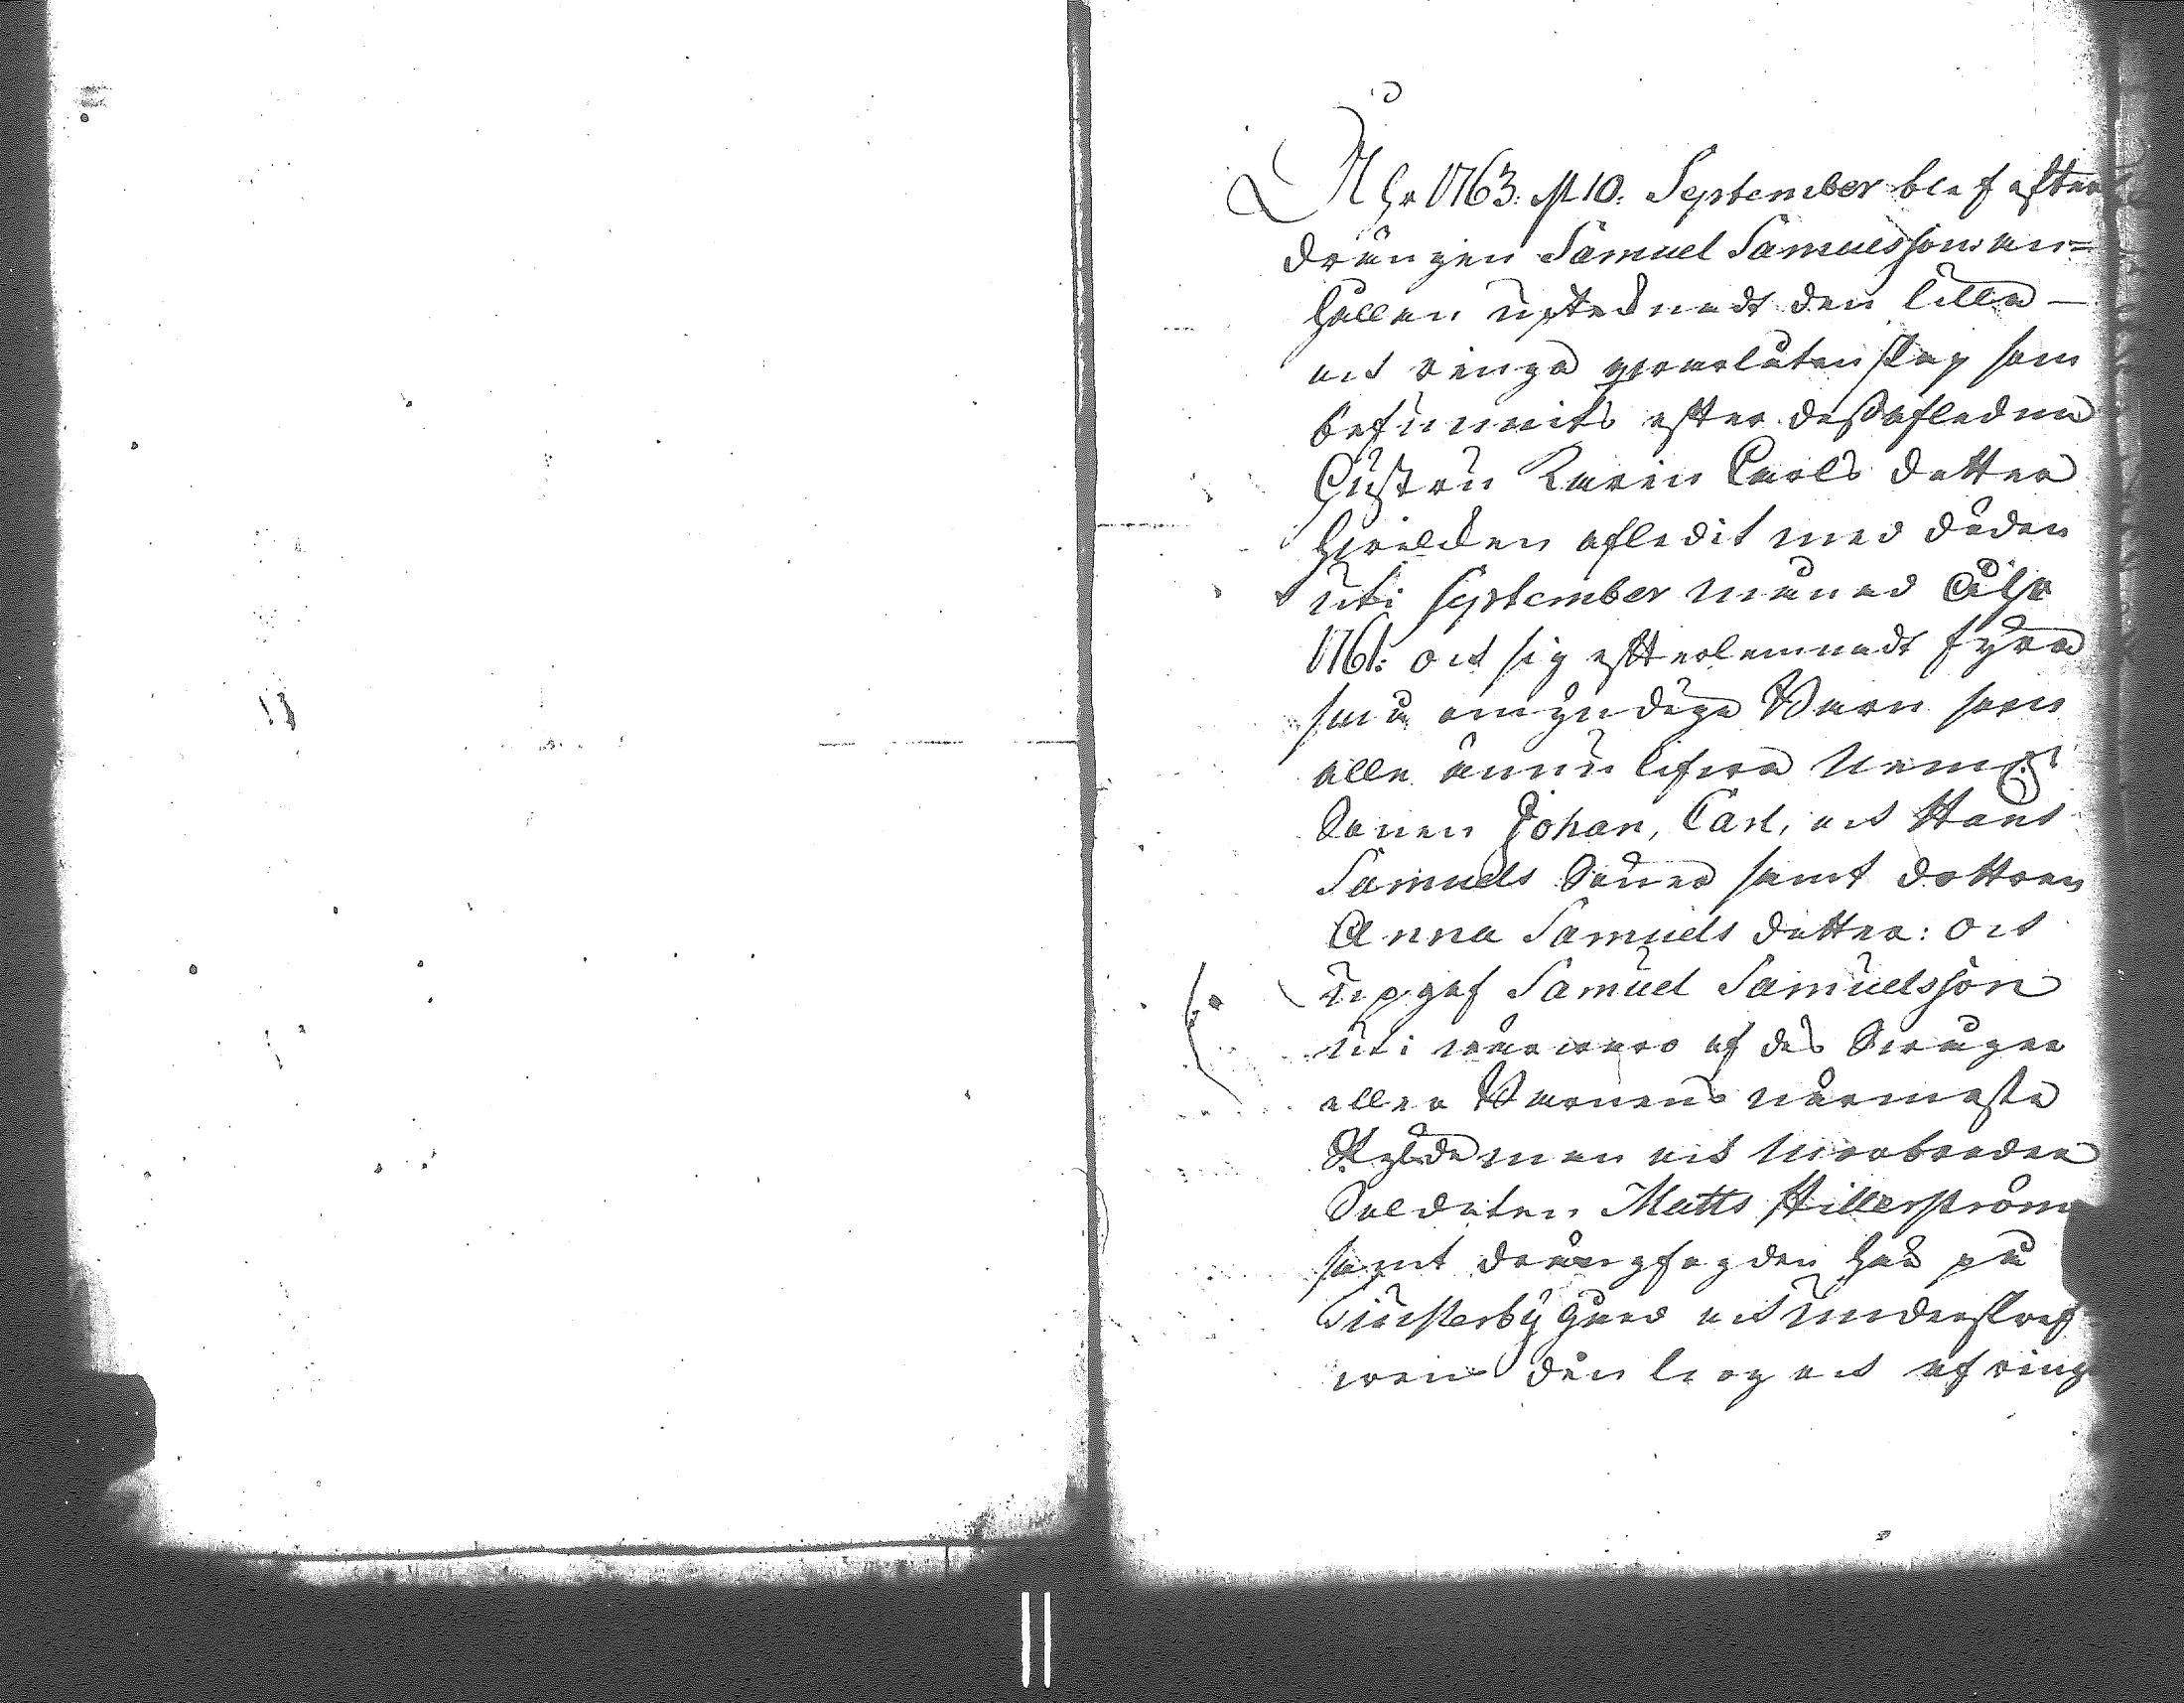 Åhr 1763. d 10. September blef efter
drängen Samuel Samuelsson an=
hållan upteknadt den lilla
och ringa qvarlåtenskap som
befunnits efter dess afledna
hustru Karin Carls dotter
hvilcken afledit med döden
uti September månad Åhr
1761: och sig efterlemnadt fyra
små omyndige Barn som
alla ännu lefva Neml:
Sonen Johan, Carl, och Hans
Samuels Söner samt dottren
Anna Samuels dotter: och
upgaf Samuel Samuelsson
uti närvaro af des Svåger
eller Barnens närmaste
Skyldeman och Morbroder
Soldaten Matts Hillerström
samt drängfogden hos på
gård och Underskref
ven den och af ring